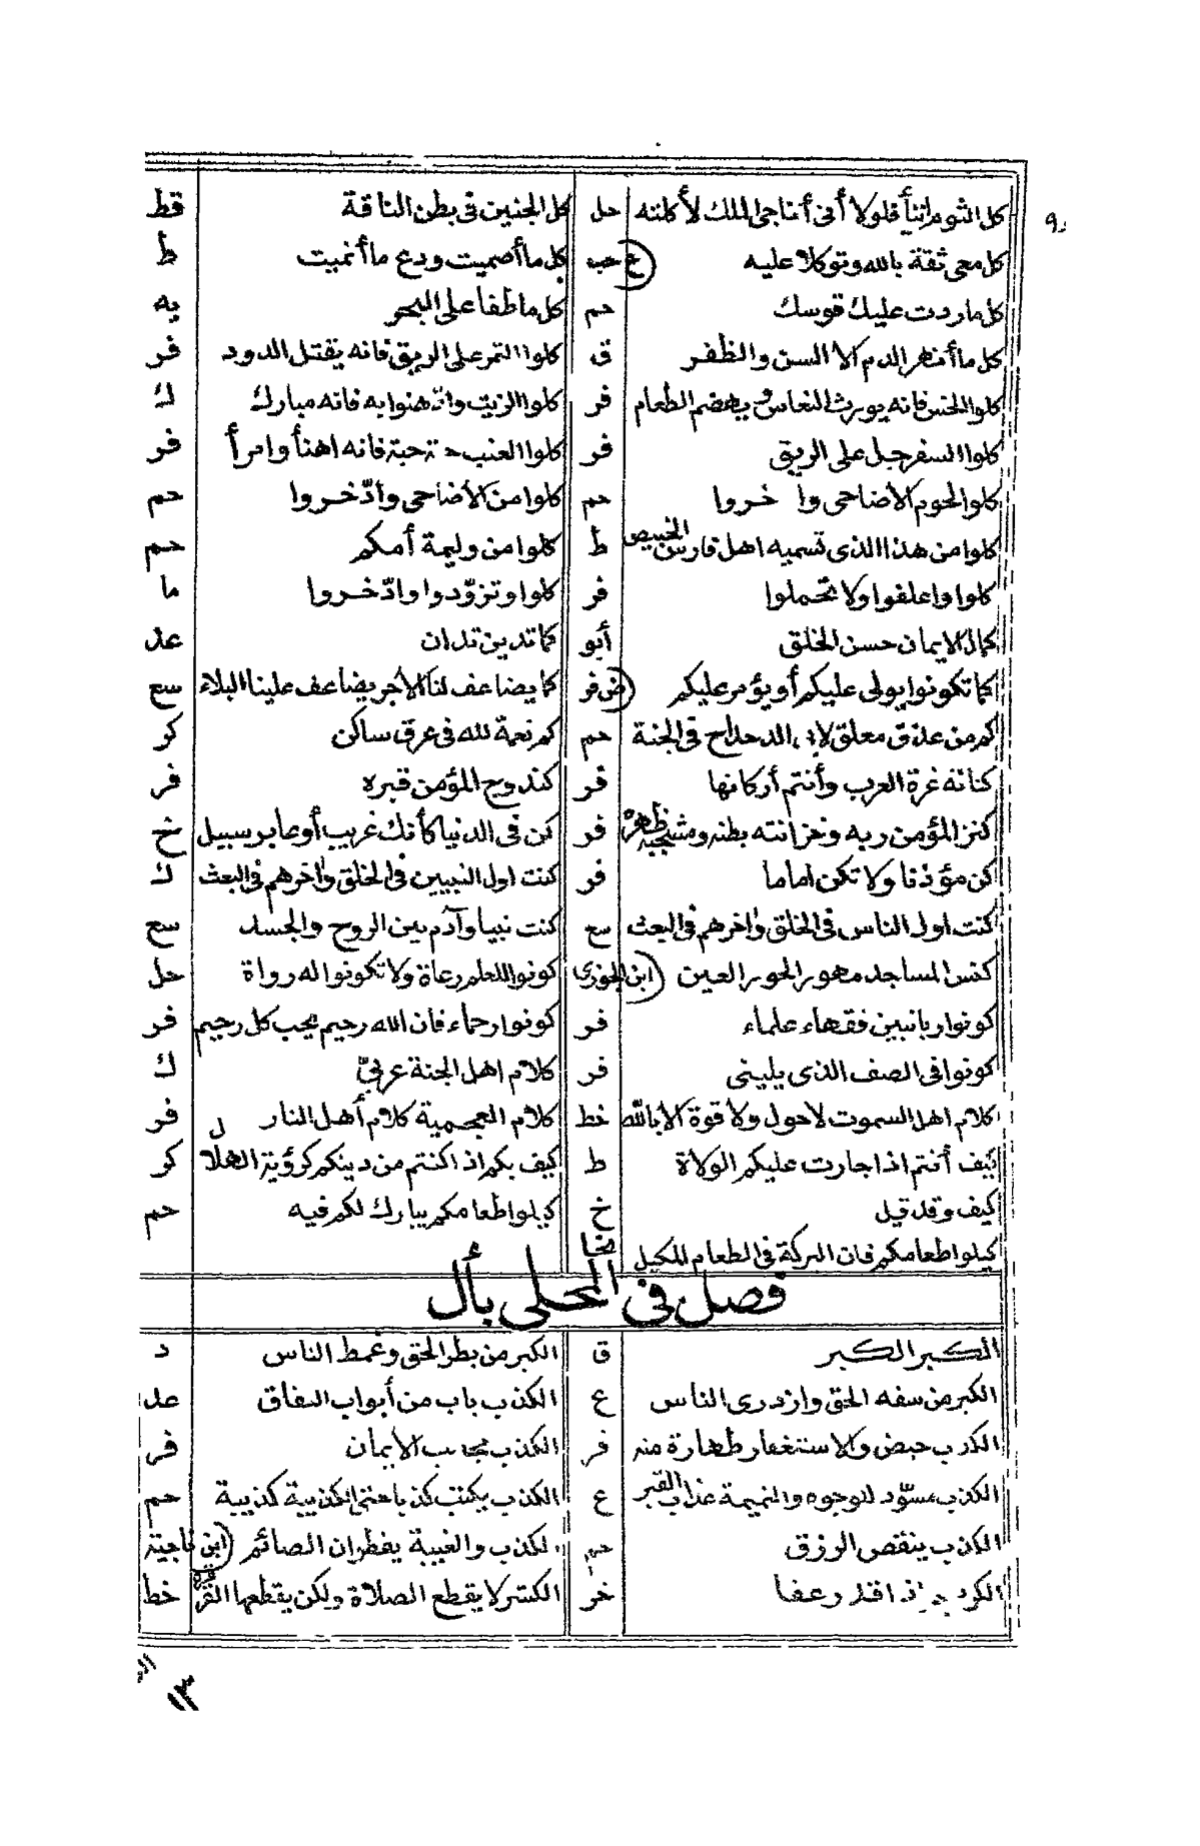 كل الثوم نيئا فلولا أنى أناجى الملك لأكلته حل كل الجنين فى بطن الناقة قط
كل معى ثقة بالله وتوكلا عليه ع حب كل ما أصميت ودع ما أنميت ط
كل ما ردت عليك قوسك حم كل ما طفا على البحر يه
كل ما أنهر الدم الا السن والظفر ق كلوا التمر على الريق فانه يقتل الدود فر
كلوا الخس فانه يورث النعاس ويهضم الطعام فر كلوا الزيت وادهنوا به فانه مبارك ك
كلوا السفرجل على الريق فر كلوا العنب حبة حبة فانه اهنأ وامرأ فر
كلوا لحوم الأضاحى وا خروا حم كلوا من الأضاحى وادّخروا حم
كلوا من هذا الذى تسميه اهل فارس الخبيص ط كلوا من وليمة أمكم حم
كلوا واعلفوا ولا تحملوا فر كلوا وتزوّدوا وادّخروا ما
كمال الايمان حسن الخلق أبو كما تدين تدان عد
كما تكونوا يولى عليكم أو يؤمر عليكم ض فر كما يضاعف لنا الأجر يضاعف علينا البلاء سع
كم من عذق معلق لابى الدحداح فى الجنة حم كم نعمة لله فى عرق ساكن كر
كنانه غرة العرب وأنتم أركانها فر كندوج المؤمن قبره فر
كنز المؤمن ربه وخزانته بطنه ومشجبه ظهره فر كن فى الدنيا كأنك غريب أو عابر سبيل خ
كن مؤذنا ولا تكن اماما فر كنت اول النبيين فى الخلق واخرهم فى البعث ك
كنت اول الناس فى الخلق واخرهم فى البعث سع كنت نبيا وآدم بين الروح والجسد سع
كنس المساجد مهور الحور العين ابن الجوزى كونوا للعلم رعاة ولا تكونوا له رواة حل
كونوا ربانيين فقهاء علماء فر كونوا رحماء فان الله رحيم يحب كل رحيم فر
كونوا فى الصف الذى يلينى فر كلام اهل الجنة عربىّ ك
كلام اهل السموت لا حول ولا قوة الا بالله خط كلام العجمية كلام أهل النار فر
كيف أنتم اذا جارت عليكم الولاة ط كيف بكم اذا كنتم من دينكم كرؤية الهلال كر
كيف وقد قيل خ كيلوا طعامكم يبارك لكم فيه حم
كيلوا طعامكم فان البركة فى الطعام المكيل نجا
فصل فى المحلى بأل
الكبر الكبر ق الكبر من بطر الحق وغمط الناس د
الكبر من سفه الحق وازدرى الناس ع الكذب باب من أبواب النفاق عد
الكذب حيض والاستغفار طهارة منه فر الكذب مجانب الايمان فر
الكذب مسوّد للوجوه والنميمة عذاب القبر ع الكذب يكتب كذبا حتى الكذيبة كذيبة حم
الكذب ينقص الرزق حم الكذب والغيبة يفطران الصائم ابن ناجية
خر الكشر لا يقطع الصلاة ولكن يقطعها القرقرة خط
١٣